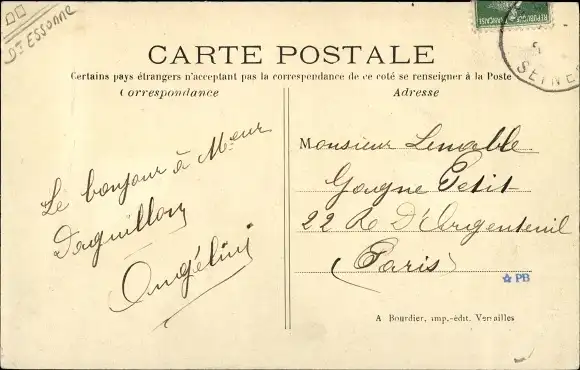 Dt ESSONNE
RÉPUBLIQUE FRANÇAISE
SEINE
CARTE POSTALE
Certains pays étrangers n'acceptant pas la correspondance de ce coté se renseigner à la Poste
Correspondance
Le bonjour à Meur
Daguillon
Angélini
Adresse
Monsieur Lenable
Gagne Petit
22 R D'Argenteuil
(Paris)
PB
A Bourdier, imp.-édit. Versailles